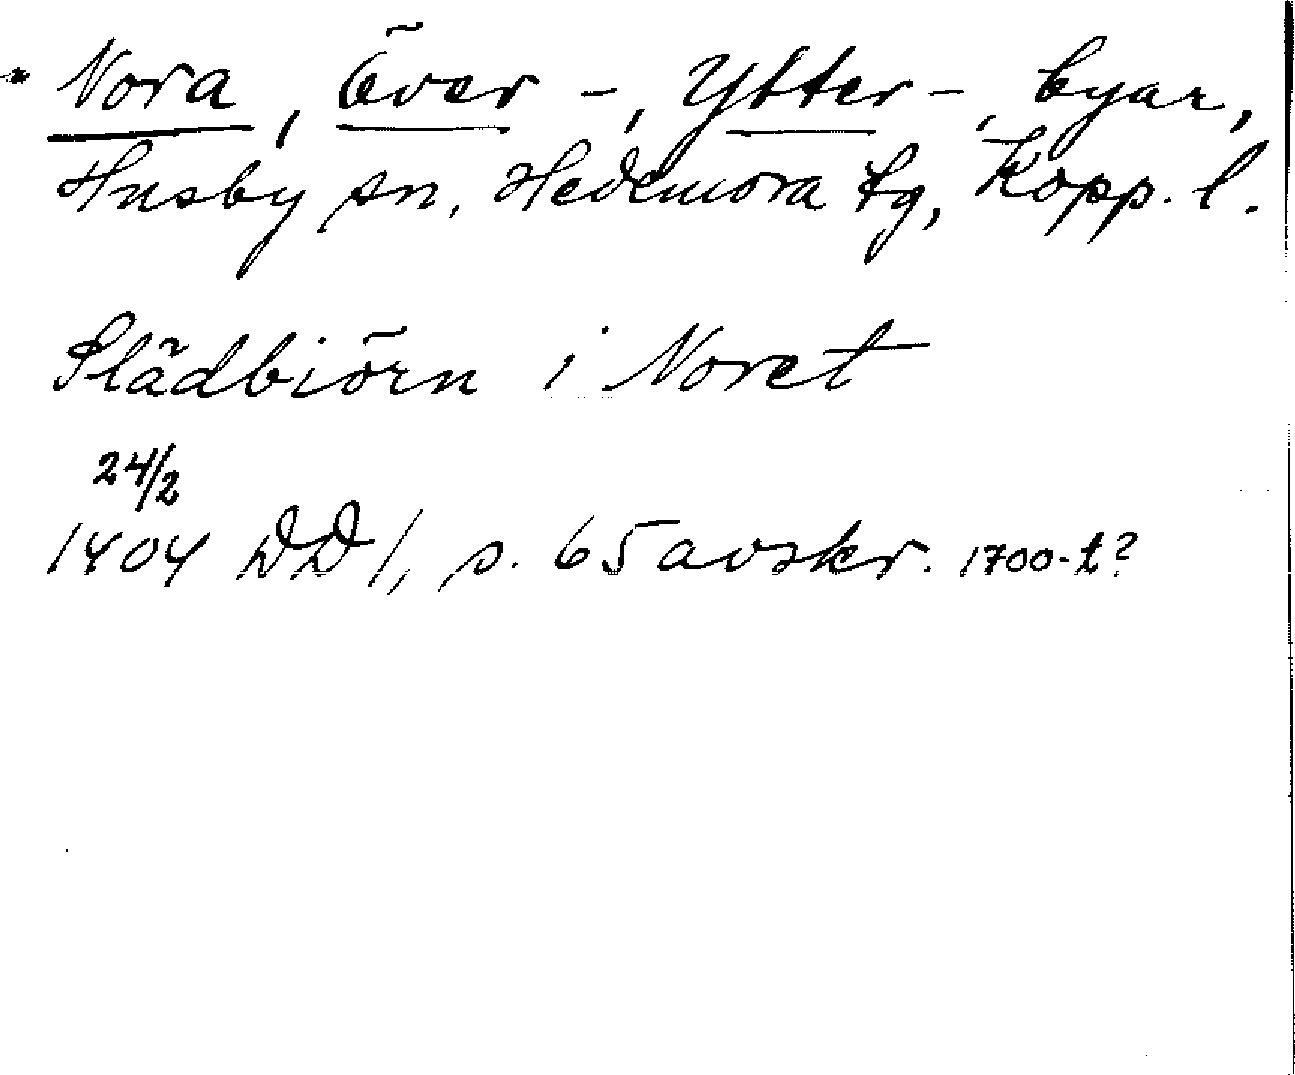 Nora, Över -, Ytter -, byar,
Husby sn, Hedemora tg, Kopp. l.
Slädbiörn i Noret
24/2
1404 DD 1, s. 65 avskr. 1700-t?